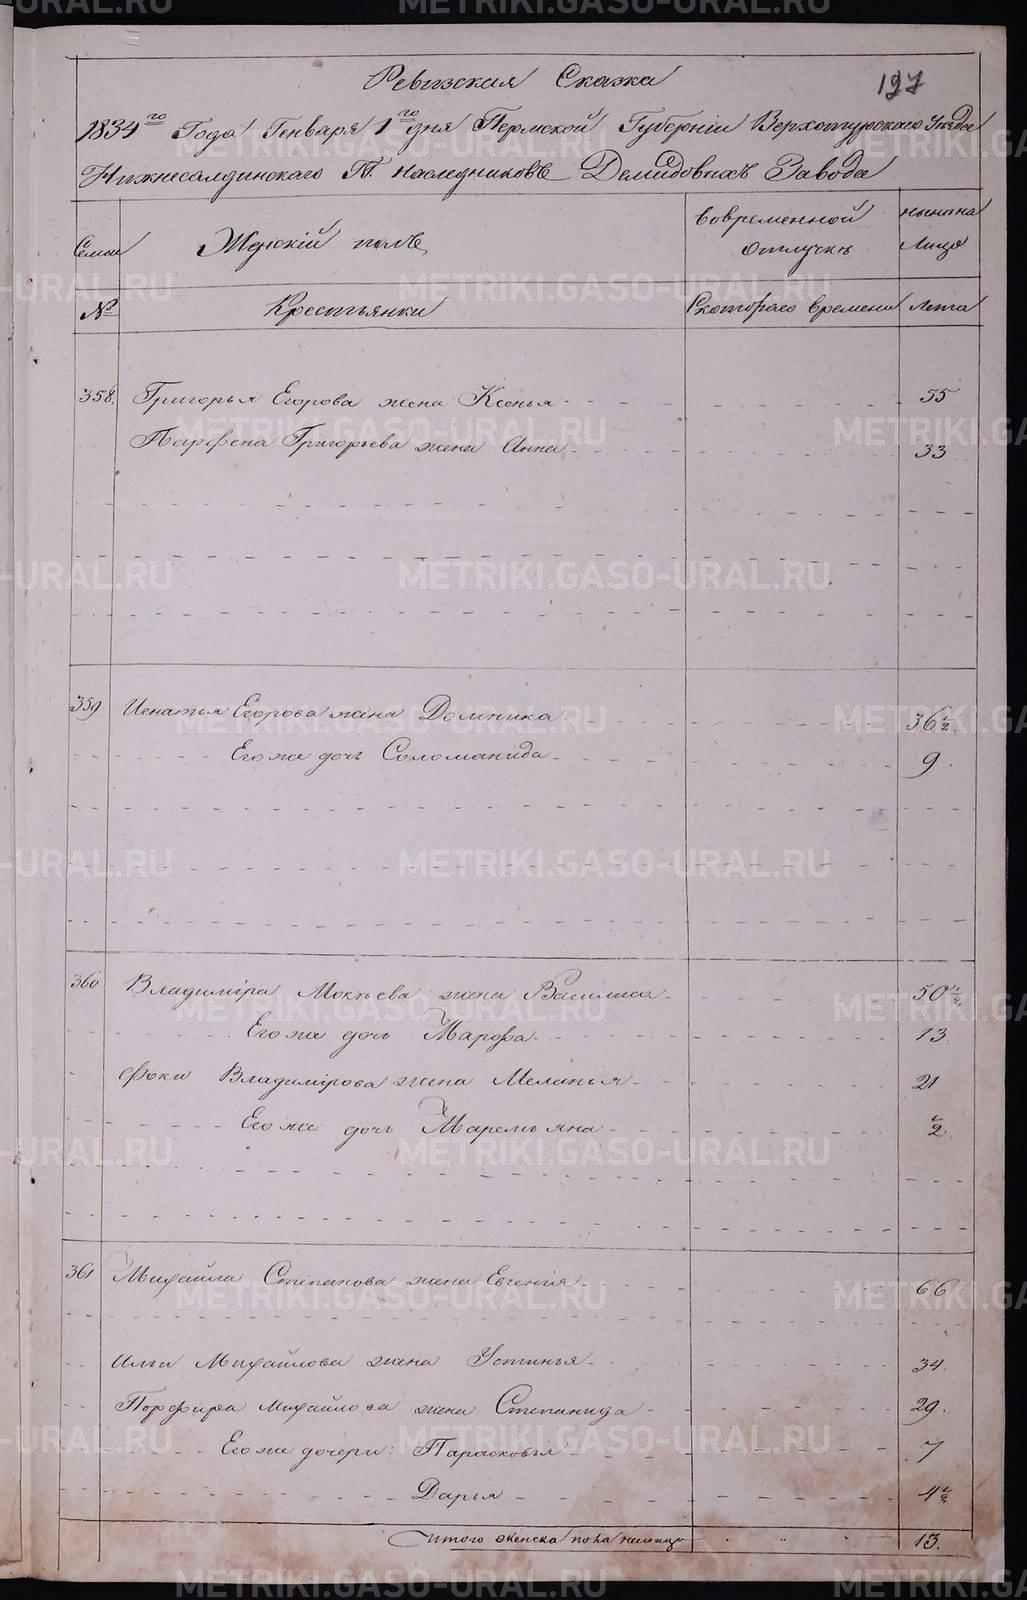 Ревизская Сказка
197
1834го Года Генваря 1го дня Пермской Губернiи Верхотурскаго Уезда
Нижнесалдинскаго Г.г. наследниковъ Демидовыхъ Завода
Семьи Женскiй полъ Вовременной отлучкѣ ныне на Лицо
№ Крестьянки Скотораго времени Лета
358. Григорья Егорова жена Ксенья 55
Парфена Григорьева жена Анна 33
359 Игнатья Егорова жена Домника 36½.
Его же дочь Соломанида 9.
360 Владимiра Мокѣева жена Василиса 50½
Его же дочь Марфа 13.
Фоки Владимiрова жена Меланья 21
Его же дочь Маремьяна ½.
361 Михайла Степанова жена Евгенiя 66
Ильи Михайлова жена Устинья 34.
Порфира Михайлова жена Степанида 29.
Его же дочери: Парасковья 7
Дарья 4½
Итого женска пола налицо 13.
METRIKI.GASO-URAL.RU